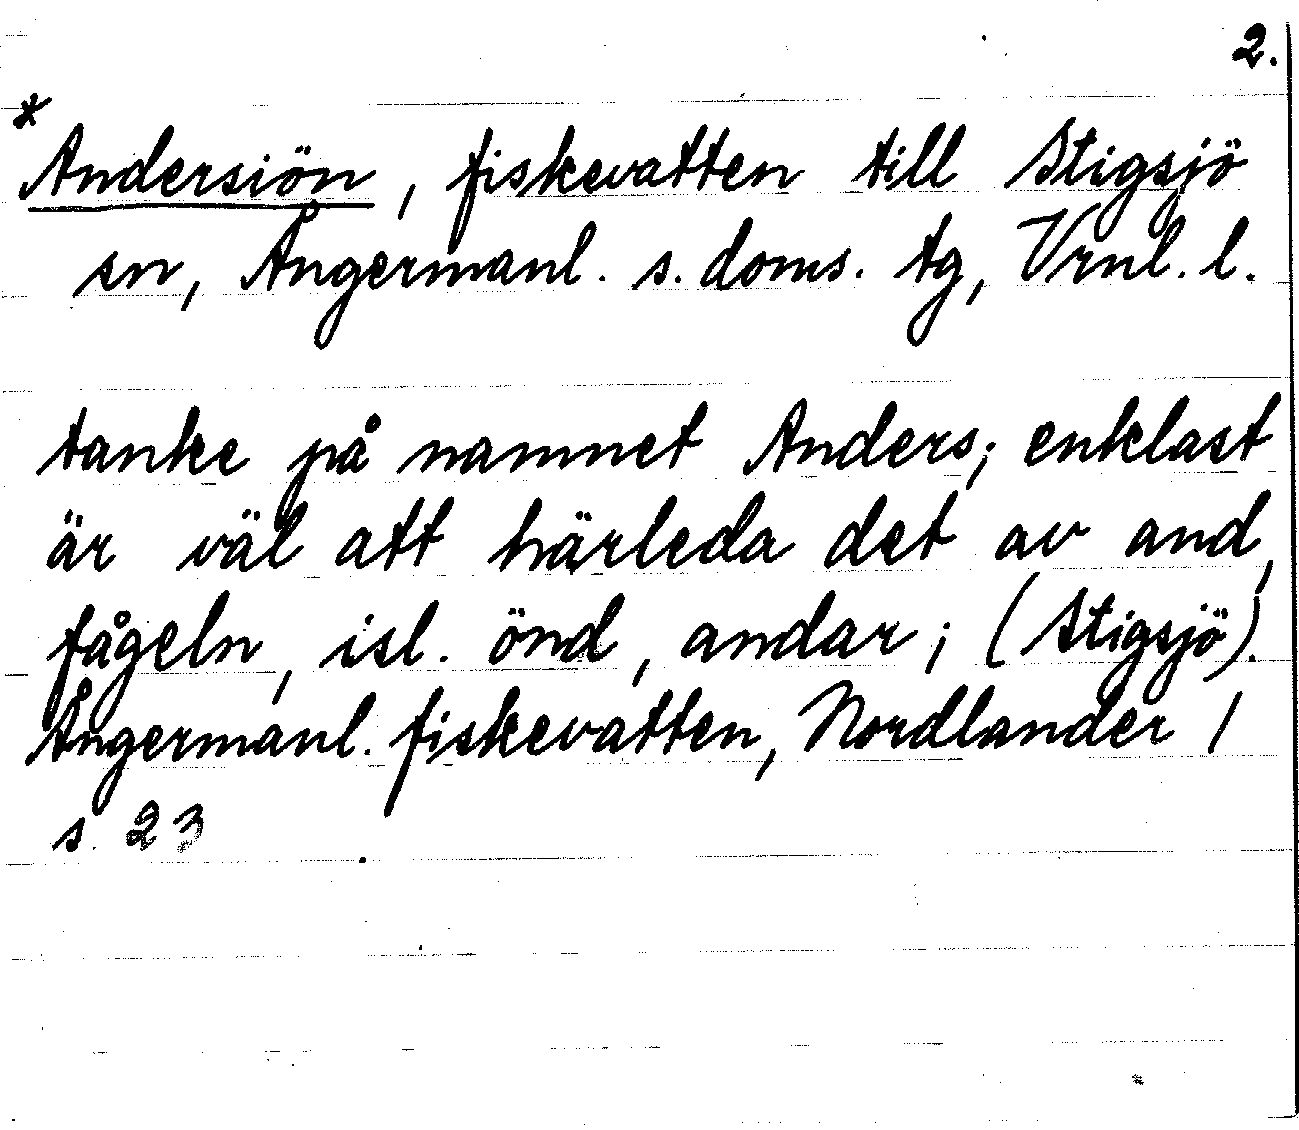 2.
* Andersiön, fiskevatten till Stigsjö
sn, Ångermanl. s. doms. tg, Vrnl. l.
tanke på namnet Anders; enklast
är väl att härleda det av and,
fågeln, isl. önd, andar; (Stigsjö).
Ångermanl. fiskevatten, Nordlander /
s. 23